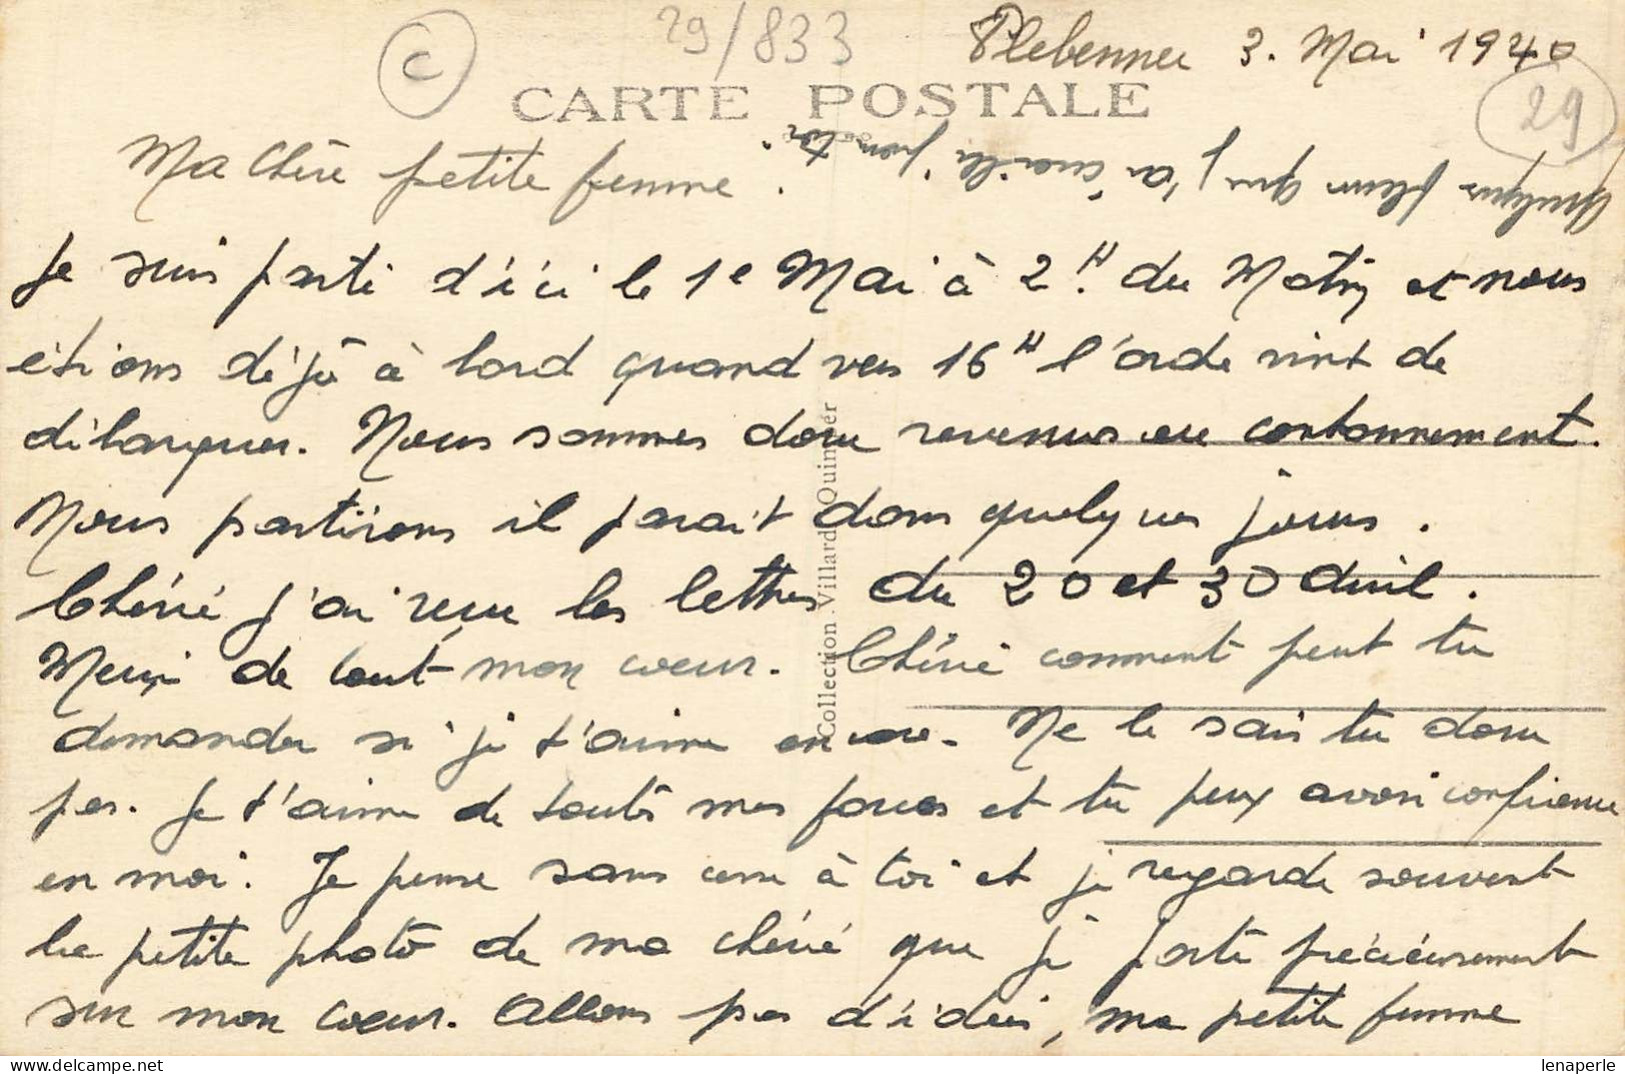 29/833
C
Plebennec 3. Mai 1940
29
CARTE POSTALE
Quelques fleurs que j'ai cueilli pour toi
Ma Chère petite femme.
Je suis parti d'ici le 1e Mai à 2H. du Matin et nous
étions déjà à bord quand vers 16H l'ordre vint de
débarquer. Nous sommes donc revenus au cantonnement.
Nous partirons il parait dans quelques jours.
Chérie j'ai reçu les lettres du 20 et 30 Avril.
Merci de tout mon cœur. Chérie comment peut tu
demander si je t'aime encore. Ne le sais tu donc
pas. Je t'aime de toutes mes forces et tu peux avoir confiance
en moi. Je pense sans cesse à toi et je regarde souvent
la petite photo de ma chérie que je porte précieusement
sur mon cœur. Allons pas d'idées, ma petite femme
Collection Villard Quimper
lenaperle